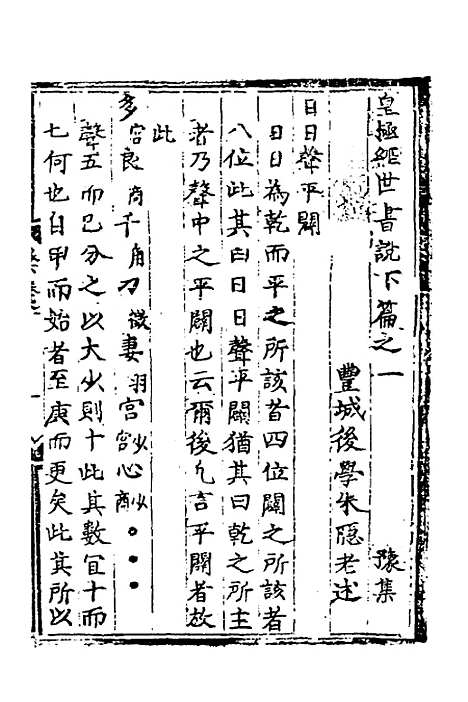 皇極經世書說下篇之一 豫集
豐城後學朱隱老述
日日聲平闢
日日為乾而平之所該者四位闢之所該者
八位此其曰日日聲平闢猶其曰乾之所主
者乃聲中之平闢也云爾後凡言平闢者放
此
多宮良商千角刀徵妻羽宮少宮心少商●●●
聲五而已分之以大少則十此其數宜十而
七何也自甲而始者至庚而更矣此其所以